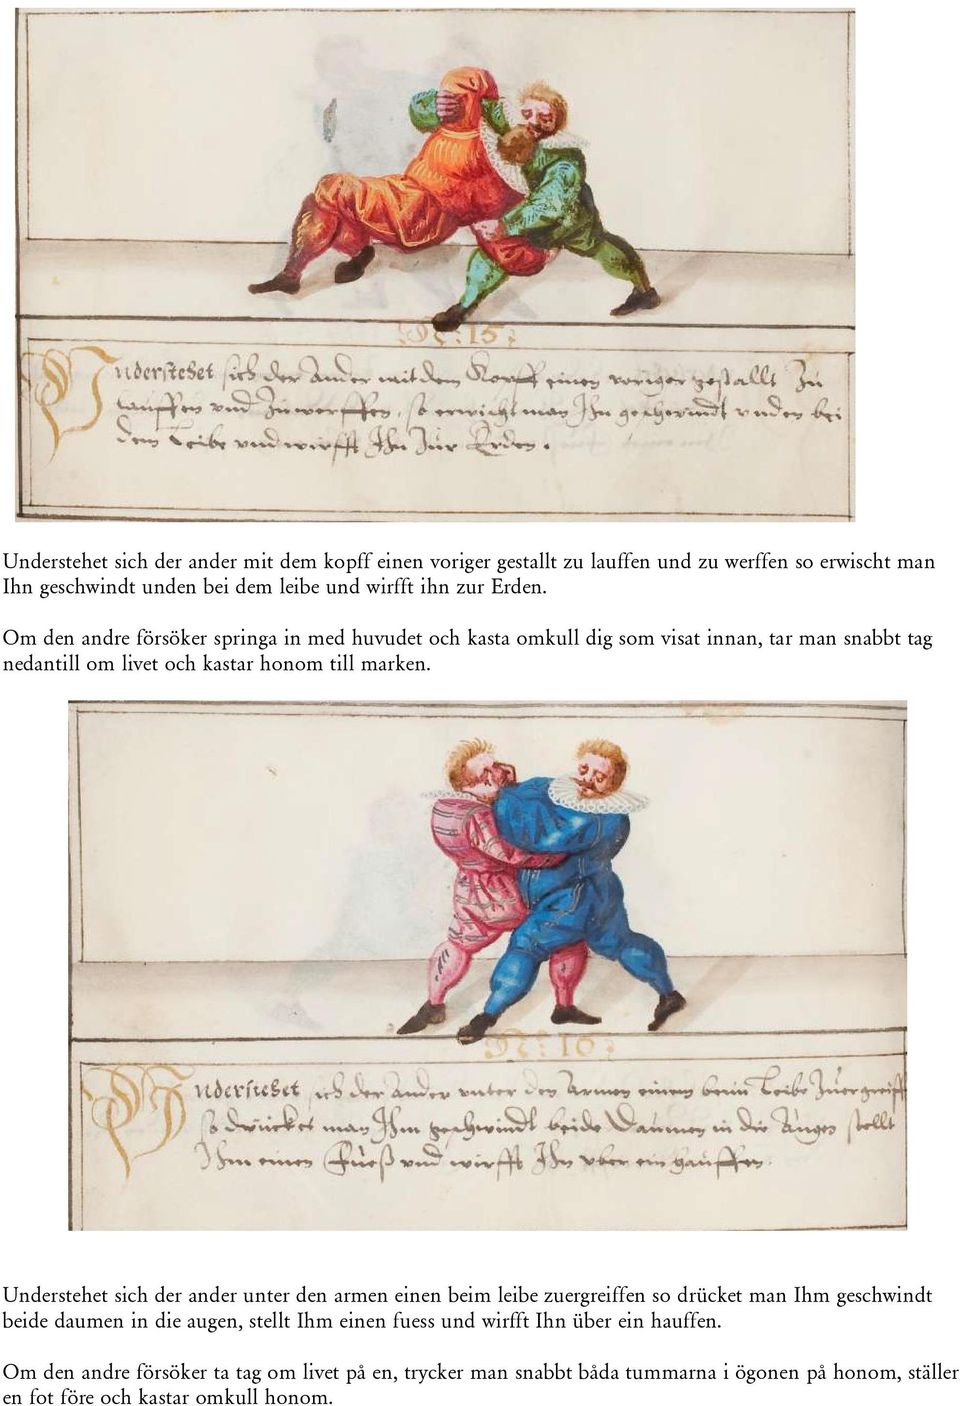 N: 15:
Understehet sich der Ander mit dem Kopff einen voriger gestallt Zu
lauffen vnd Zu werffen, so erwischt man Ihn geschwindt vnden bei
dem Leibe vnd wirfft Ihn Zur Erden.
Understehet sich der ander mit dem kopff einen voriger gestallt zu lauffen und zu werffen so erwischt man
Ihn geschwindt unden bei dem leibe und wirfft ihn zur Erden.
Om den andre försöker springa in med huvudet och kasta omkull dig som visat innan, tar man snabbt tag
nedantill om livet och kastar honom till marken.
N: 16:
Understehet sich der Ander vnter den Armen einen beim Leibe Zuergreiff
so drücket man Ihm geschwindt beide Daumen in die Augen stellt
Ihm einen Fueß vnd wirfft Ihn vber ein hauffen.
Understehet sich der ander unter den armen einen beim leibe zuergreiffen so drücket man Ihm geschwindt
beide daumen in die augen, stellt Ihm einen fuess und wirfft Ihn über ein hauffen.
Om den andre försöker ta tag om livet på en, trycker man snabbt båda tummarna i ögonen på honom, ställer
en fot före och kastar omkull honom.